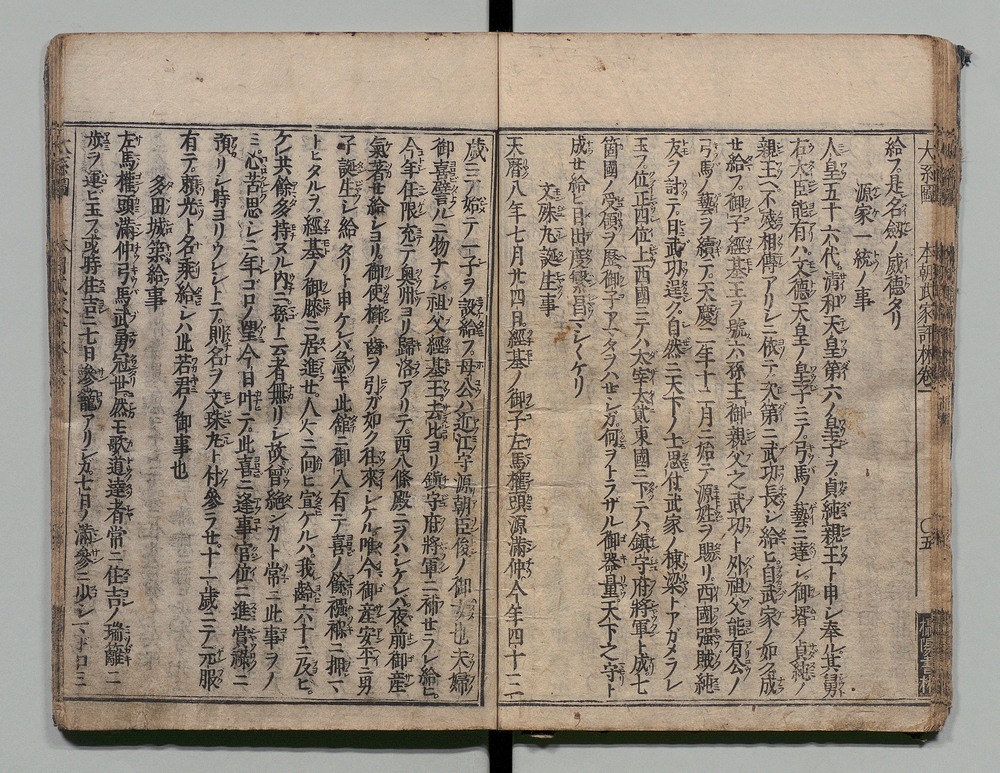 大系圖 本朝武家評林卷一 〇五
給フ。走名劔ノ威德タリ
源家一統ノ事
人皇五十六代清和天皇第六ノ皇子ヲ。貞純親王ト申シ奉ル其舅
右大臣能有ハ。文德天皇ノ皇子ニテ。弓馬ノ藝ニ達シ。御壻ノ貞純ノ
親王ヘ不殘相傳アリシニ依テ。次第ニ武功長シ給ヒ。自武家ノ如ク成
世給フ。御子經基王ヲ號六孫王。御親父之武功ト外祖父能有公ノ
弓馬ノ藝ヲ續テ。天慶二年十一月ニ始テ源姓ヲ賜リ。西國强賊純
友ヲ討テ。日武功逞ク。自然ニ天下ノ士思付武家ノ棟梁トアガメラレ
玉フ。位正四位上西國ニテハ大宰大貳東國ニ下テハ鎮守府將軍ト成七
箇國ノ受領ヲ歴御子アマタヲハセシガ。何ヲトラザル御器量天下之守ト
成世給ヒ日出度繁昌マシ〱ケリ
文殊丸誕生ノ事
天曆八年七月廿四日。經基ノ御子左馬權頭源滿仲。今年四十二
歲ニテ始テ一子ヲ設給フ。母公ハ近江守源朝臣俊ノ御女也夫婦
御喜譬ルニ物ナシ。祖父經基王去比ヨリ鎮守府將軍ニ補セラレ給ヒ。
今年任限充テ奧州ヨリ歸洛アリテ。西八條殿ニヲハシケレバ。夜前御産
氣著世給シヨリ。御使櫛ノ齒ヲ引ガ如ク往來シケル。唯今御産安平ニ男
子誕生シ給タリト申ケレバ。急キ此舘ニ御入有テ喜ノ餘襁褓ニ押マ
トヒタルヲ。經基ノ御膝ニ居進セ。人々ニ向ヒ宣ケルハ。我齡六十ニ及ビ。
ケン共餘多持ヌル内ニ。孫ト云者無リシ故。曾絕シカト常ニ此事ヲノ
ミ心苦思シニ年ゴロノ望今日叶テ此喜ニ逢事官位ニ進當祿ニ
預リシ時ヨリウレシトテ。則名ヲ文珠丸ト付參ラセ十一歲ニテ元服
有テ。賴光ト名乘給シハ此若君ノ御事也
多田城築給事
左馬權頭滿仲弓馬武勇冠世。然モ歌道達者常ニ住吉ノ瑞籬ニ
歩ヲ運ビ玉フ。或時住吉ニ七日參籠アリシ。九七月ノ滿參ニ少シ
大系圖